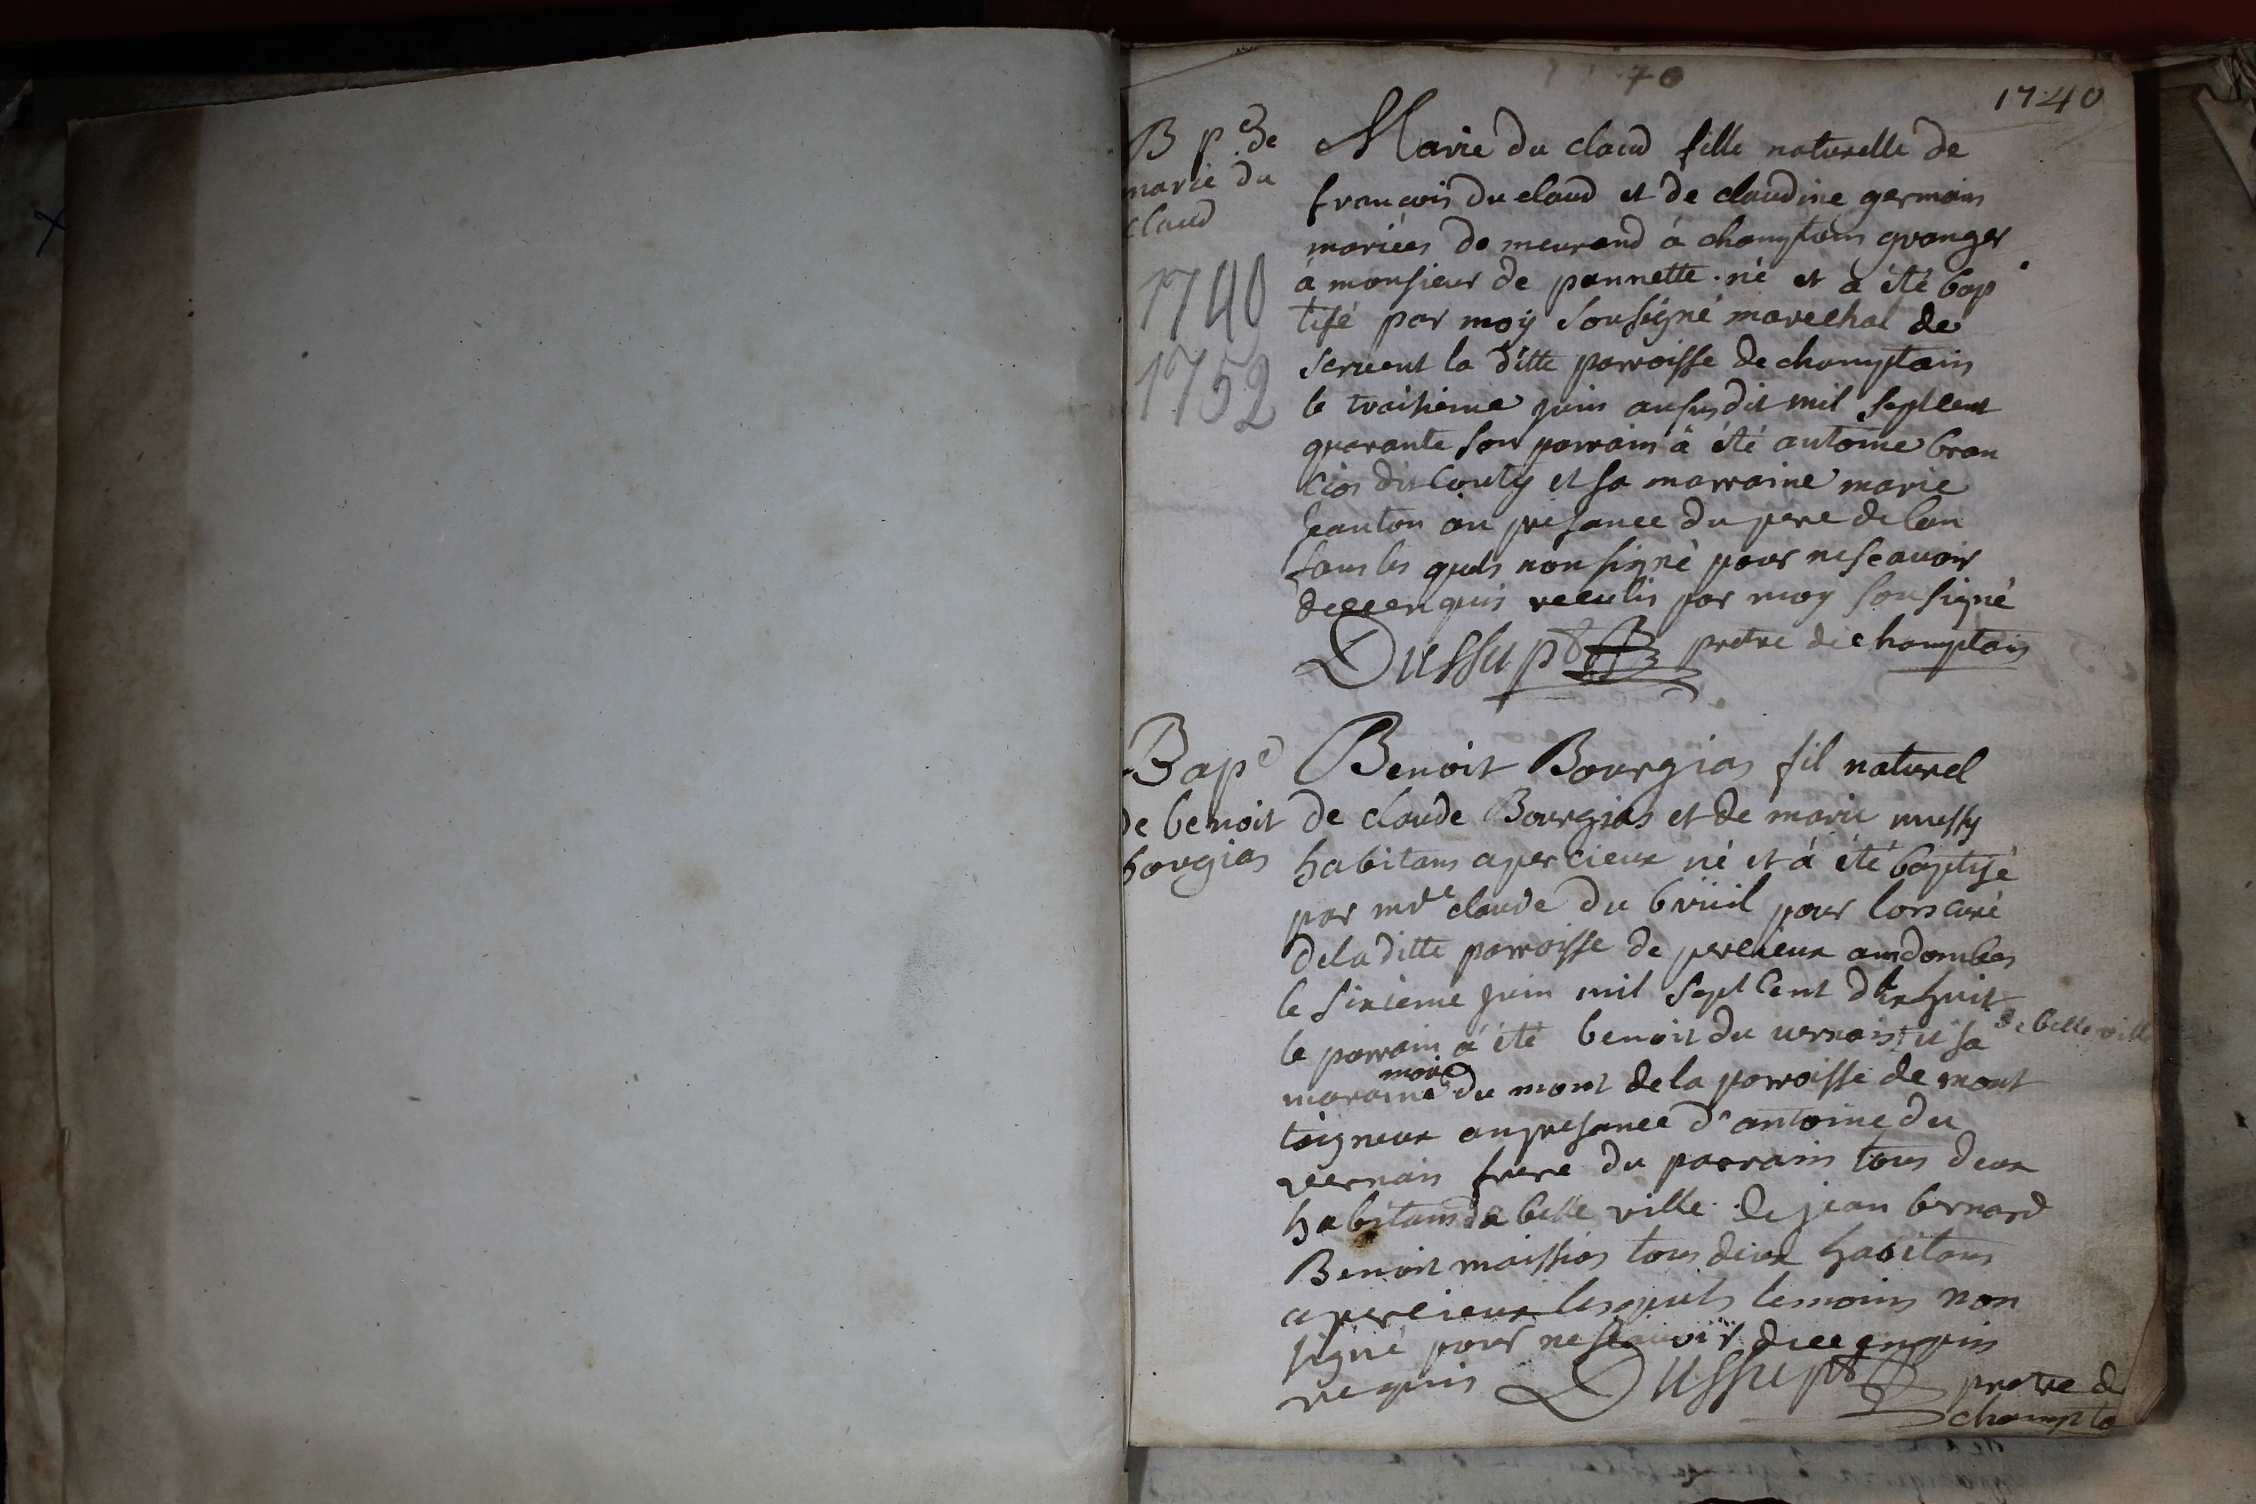 1740
B p.e de
marie du
claud
1740
1752
Marie du claud fille naturelle de
francois du claud et de claudine germain
mariées demeurand á champtain granger
á monsieur de pannette . né et a été bap
tisé par moy Sousigné marechal de
servent la ditte parroisse de champtain
le troisieme juin ausus dit mil sept cent
quarante son parrain á été antoine bran
cion dit Couty et sa marraine marie
au presance du pere de lan
fans les quels non signé pour ne scavoir
de ce enquis par moy sousigné
Dussupt pretre de champtain
Bap.e
de benoit
bourgias
Benoit Bourgias fil naturel
de claude Bourgias et de marie mussy
habitans a percieux né et á été baptisé
par mre claude du bruil pour lors curé
de la ditte parroisse de percieux an dombes
le sixieme juin mil sept Cent dix huit
le parrain á été benoit du vernais et sa de belle ville
maraine marie du mont de la parroisse de mont
taigneux an presance d'antoine du
vernais frere du parrain tous deux
habitans de belle ville de jean bernard
Benoit maission tous deux habitans
a percieux lesquels temoins non
signé pour ne scavoir de ce enquis
requis Dussupt pretre d
champta